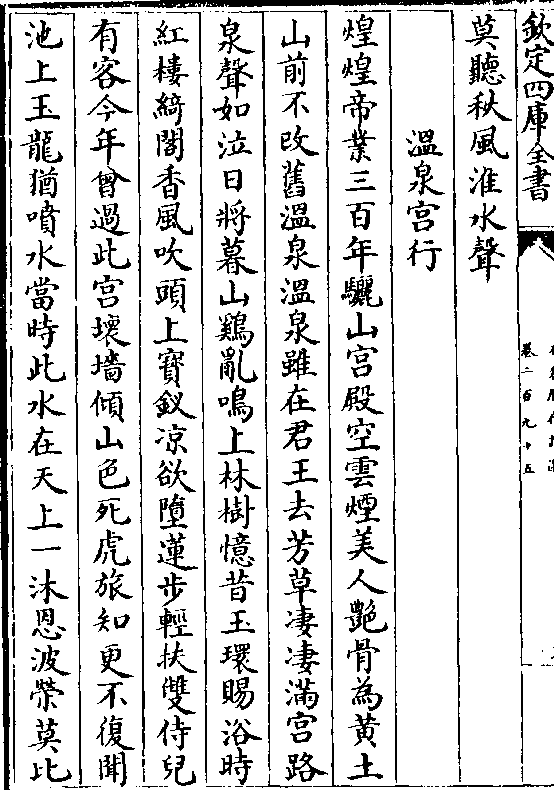 欽定四庫全書
卷二百九十五
莫聽秋風淮水聲
溫泉宮行
煌煌帝業三百年驪山宮殿空雲煙美人艷骨為黃土
山前不改舊溫泉溫泉雖在君王去芳草凄凄滿宮路
泉聲如泣日將暮山鷄亂鳴上林樹憶昔玉環賜浴時
紅樓綺閣香風吹頭上寶釵凉欲墮蓮步輕扶雙侍兒
有客今年曾過此宮壞墻傾山色死虎旅知更不復聞
池上玉龍猶噴水當時此水在天上一沐恩波榮莫比